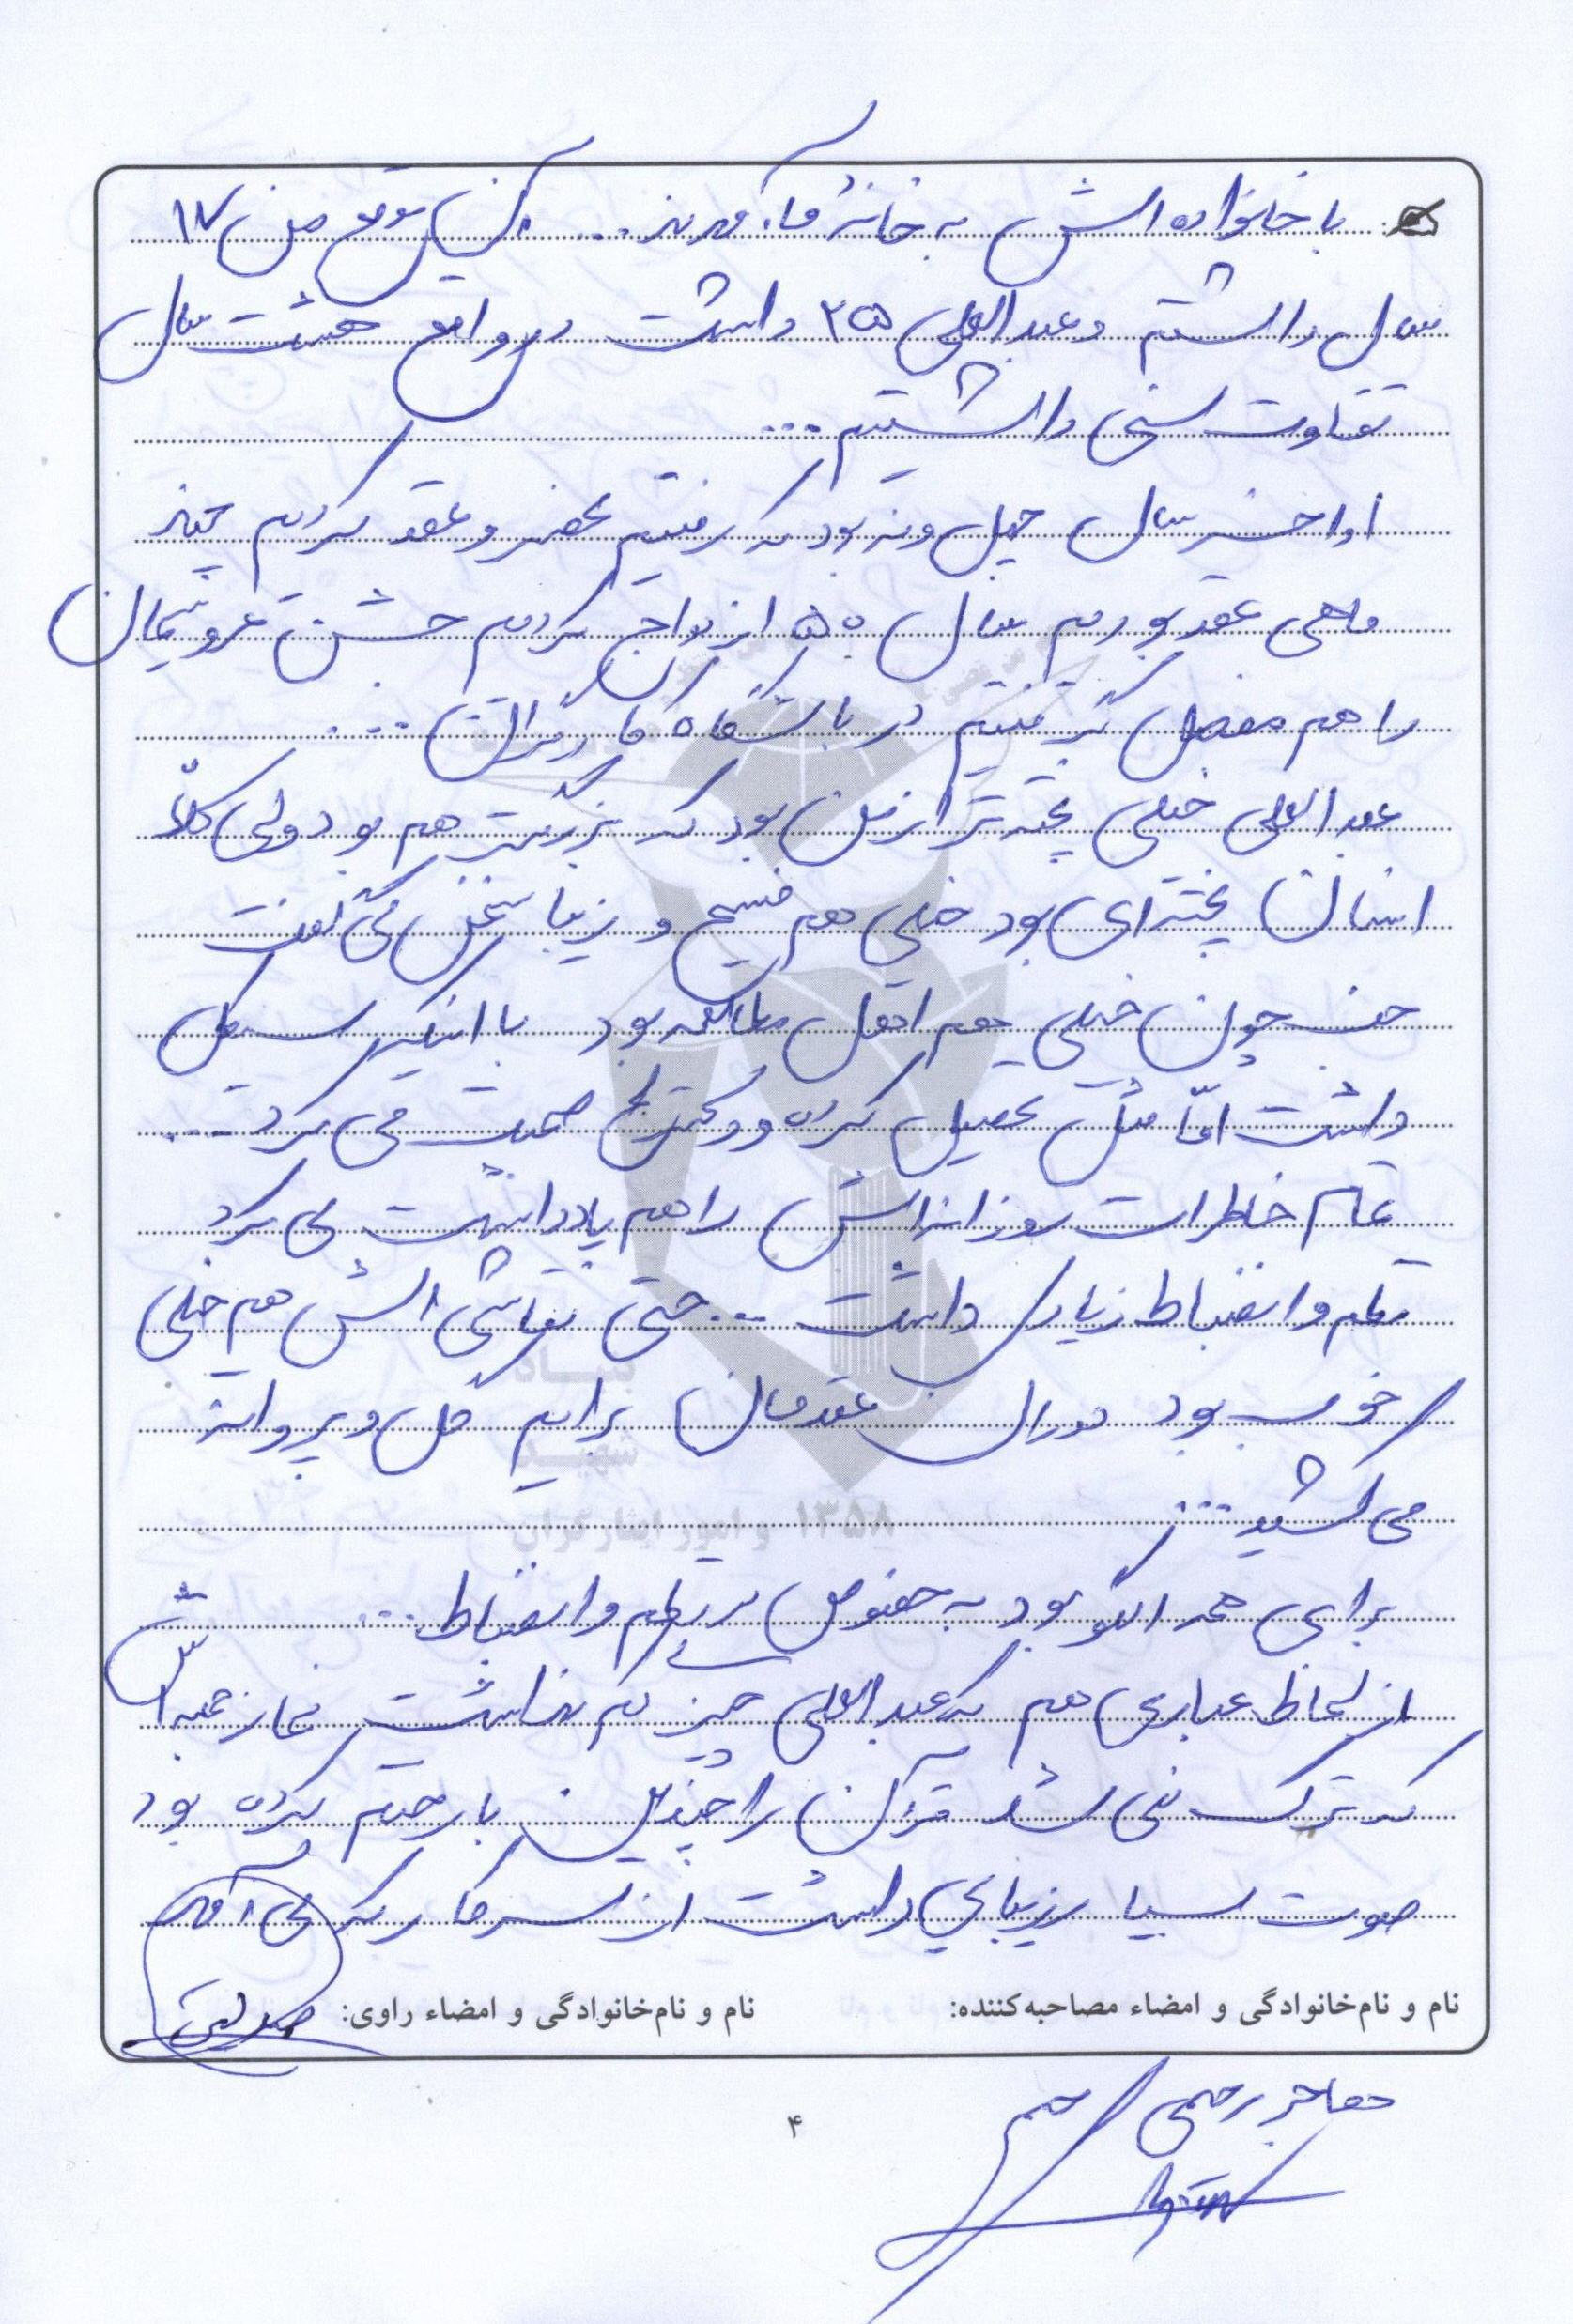 با خانواده اش به خانهٔ ما آمدند... آن موقع من ۱۷
سال داشتم و عبدالعلی ۲۵ داشت در واقع هشت سال
تفاوت سنی داشتیم...
اواخر سال چهل و نه بود که رفتیم محضر و عقد کردیم چند
ماهی عقد بودیم سال ۵۰ ازدواج کردیم جشن عروسیمان
را هم مفصل گرفتیم در باشگاه کارگران...
عبدالعلی خیلی پخته تر از من بود که بزرگتر هم بود ولی کلاً
انسان پخته ای بود خیلی هم فسیح و زیبا سخن می گفت
چون خیلی هم اهل مطالعه بود با اینکه سیکل
داشت امّا مثل تحصیل کرده و دکترها صحبت می کرد...
تمام خاطرات روزانه اش را هم یادداشت می کرد
نظم و انضباط زیادی داشت... حتی نقاشی اش هم خیلی
خوب بود دوران عقدمان برایم گل و پروانه
می کشید...
برای همه الگو بود به خصوص در نظم و انضباط...
از لحاظ عبادی هم که عبدالعلی چیزی کم نداشت نماز شبش
که ترک نمی شد قرآن را چندین بار ختم کرده بود
صوت بسیار زیبایی داشت از سر کار که می آمد
نام و نام‌خانوادگی و امضاء مصاحبه‌کننده: نام و نام‌خانوادگی و امضاء راوی:
رحیمی
۴
بنیاد
شهید
و امور ایثارگران ۱۳۵۸